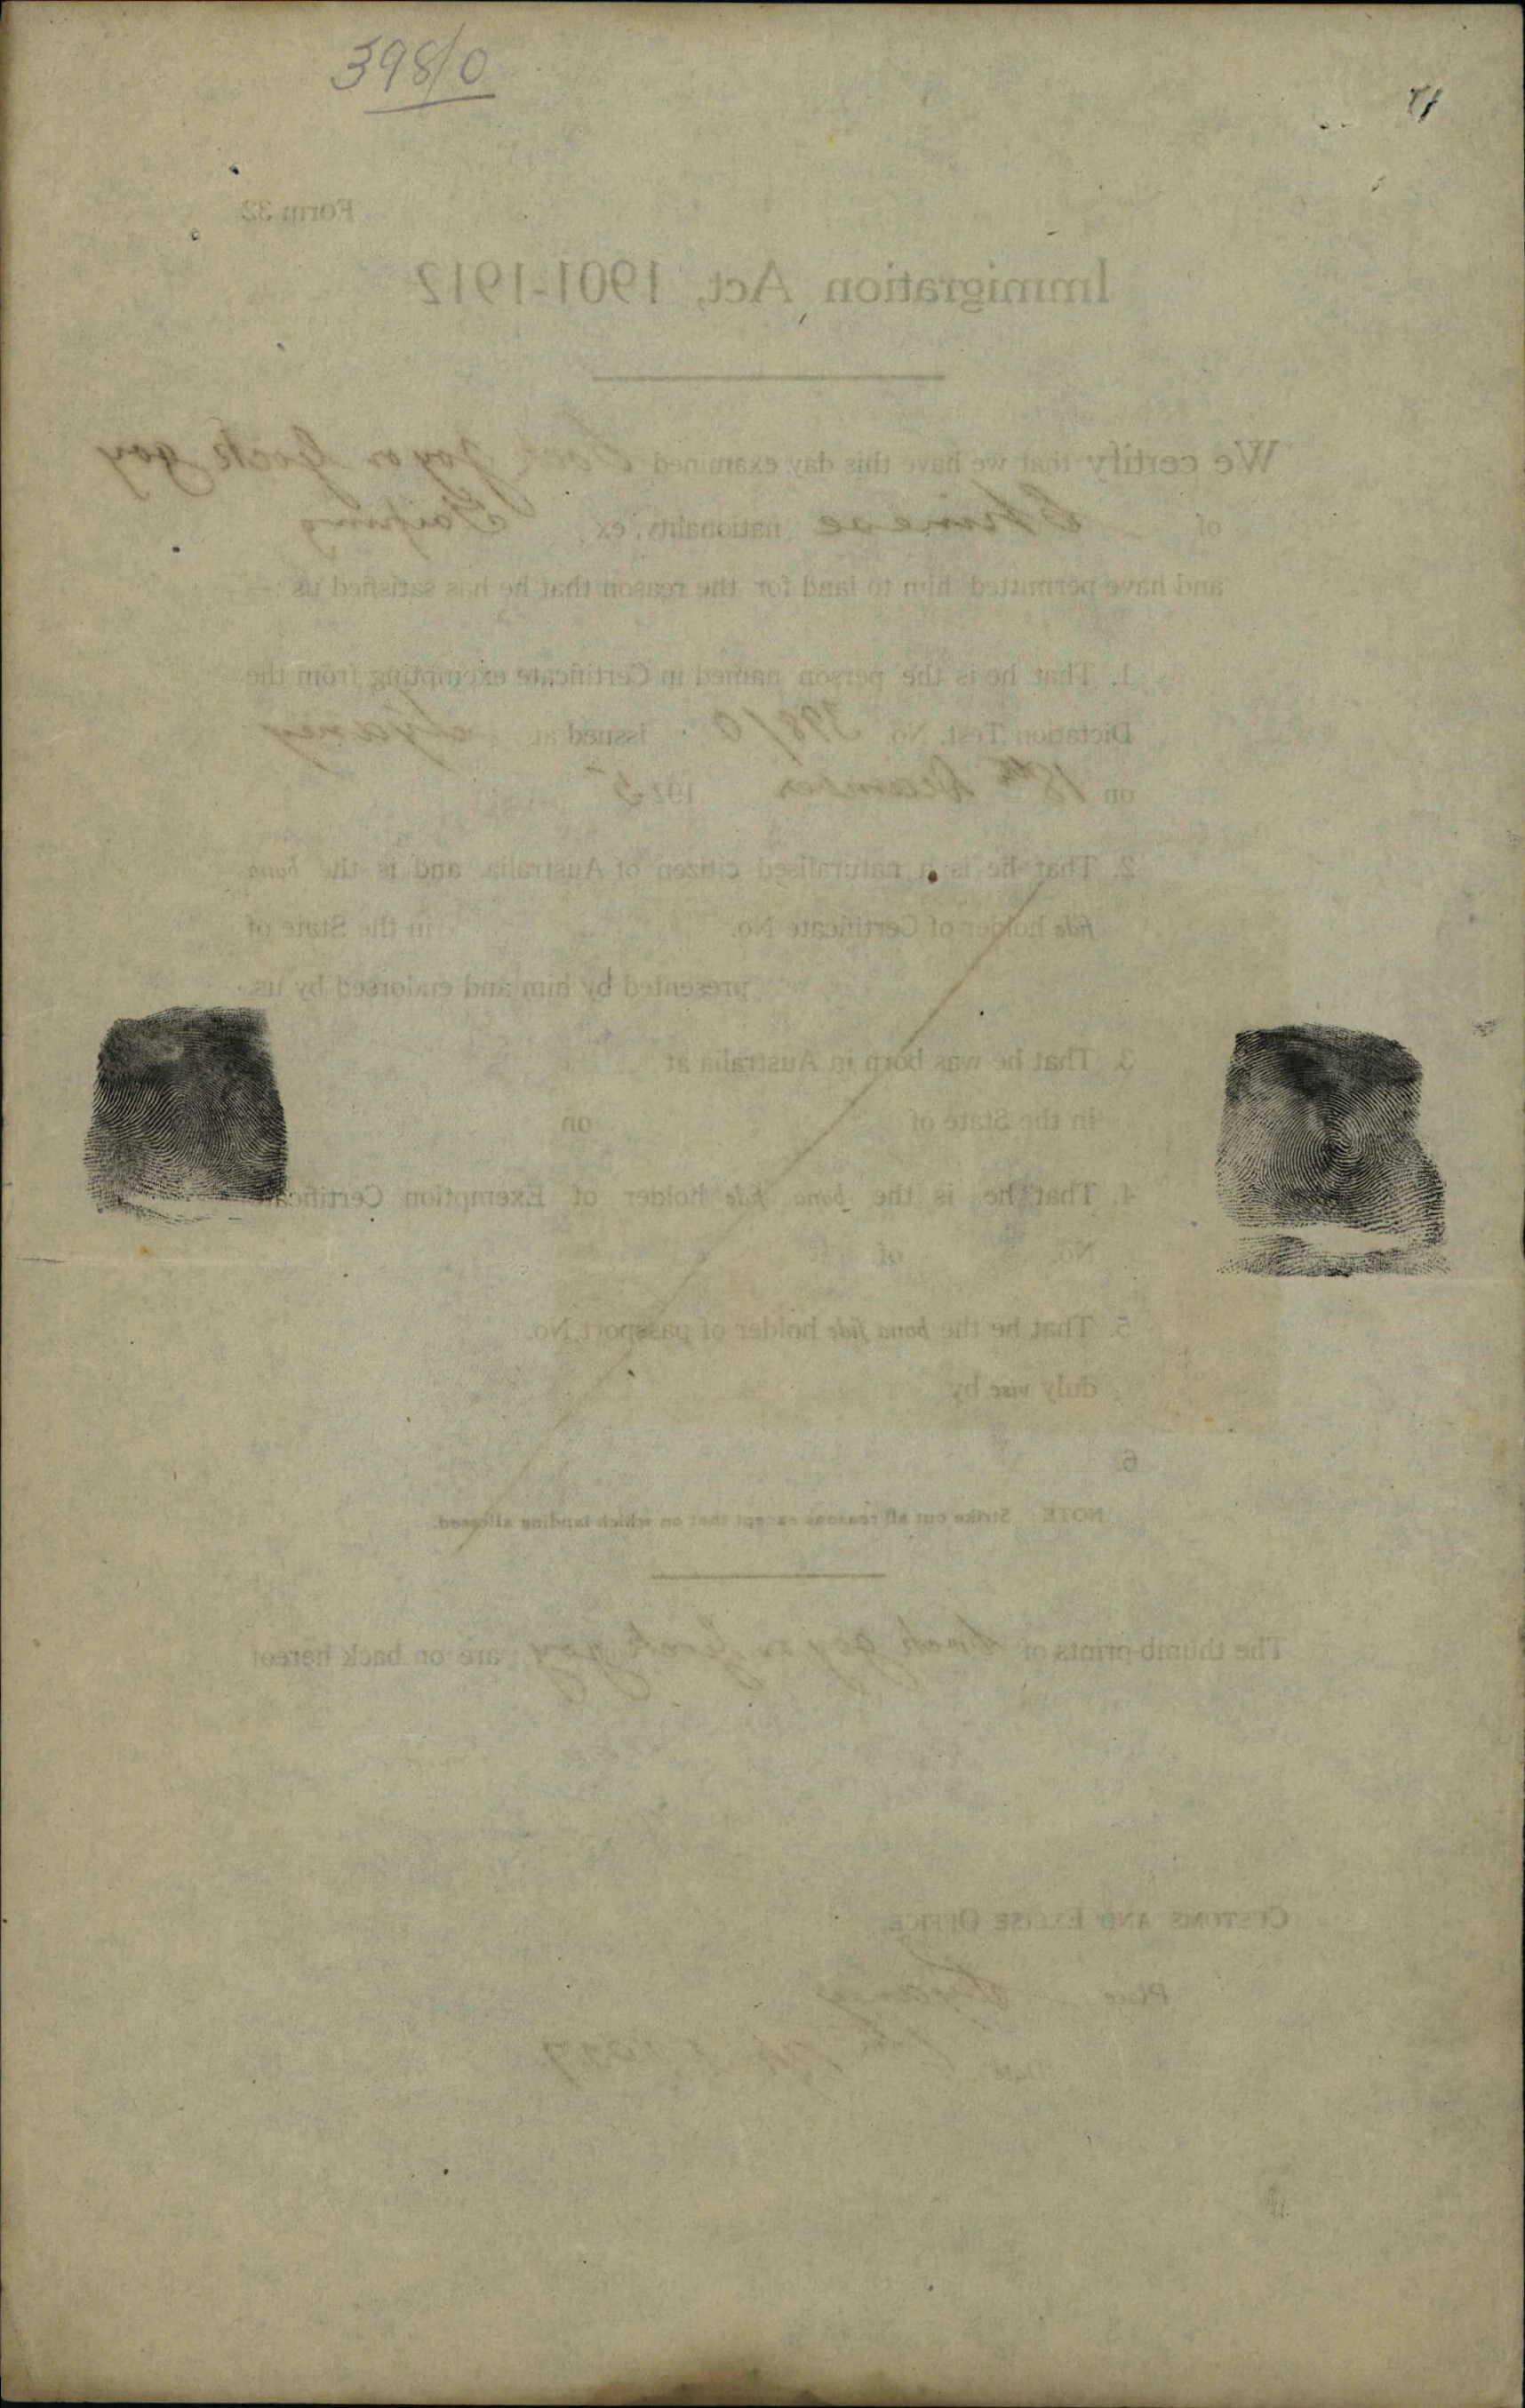 398/0
Form 32
Immigration Act, 1901-1912
We certify that we have this day examined Goy or Gock Goy
of Chinese nationality, ex Taiping
and have permitted him to land for the reason that he has satisfied us :—
1. That he is the person named in Certificate exempting from the
Dictation Test, No. 398/0 issued at Sydney
on 18th December 1925
2. That he is a naturalised citizen of Australia and is the bona
fide holder of Certificate No. in the State of
presented by him and endorsed by us.
3. That he was born in Australia at
in the State of on
4. That he is the bona fide holder of Exemption Certificate
No. of
5. That he the bona fide holder of passport No.
duly vise by
6.
NOTE Strike out all reasons except that on which landing allowed.
The thumb-prints of Goy or Gock Goy are on back hereof
CUSTOMS AND EXCISE OFFICE
Place Sydney
Date 1927